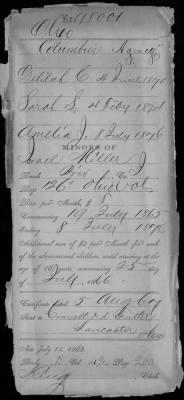 18001
Ohio
Columbus Agency
Delilah C. 4 June 1870
Sarah S. 4 Feby 1874
Amelia J. 8 July 1876
MINORS OF
Miller J
Rank Priv Co. J
Regt 126" Ohio Vol
Rate per Month, $ 8
Commencing 19 July 1865
Ending 8 July 1876
Additional sum of $2 per Month for each
of the abovenamed children, until arriving at the
age of 16 years, commencing 25 day
of July 1866.
Certificate dated 5 Aug 69
Sent a
Lancaster Ohio
Act July 14, 1862
Book Vol. Page 200
Clerk